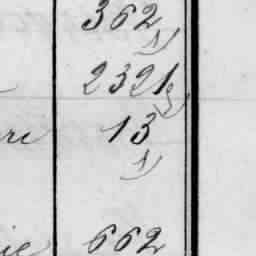 362
1)
2321
3)
re 13
1)
ie 662